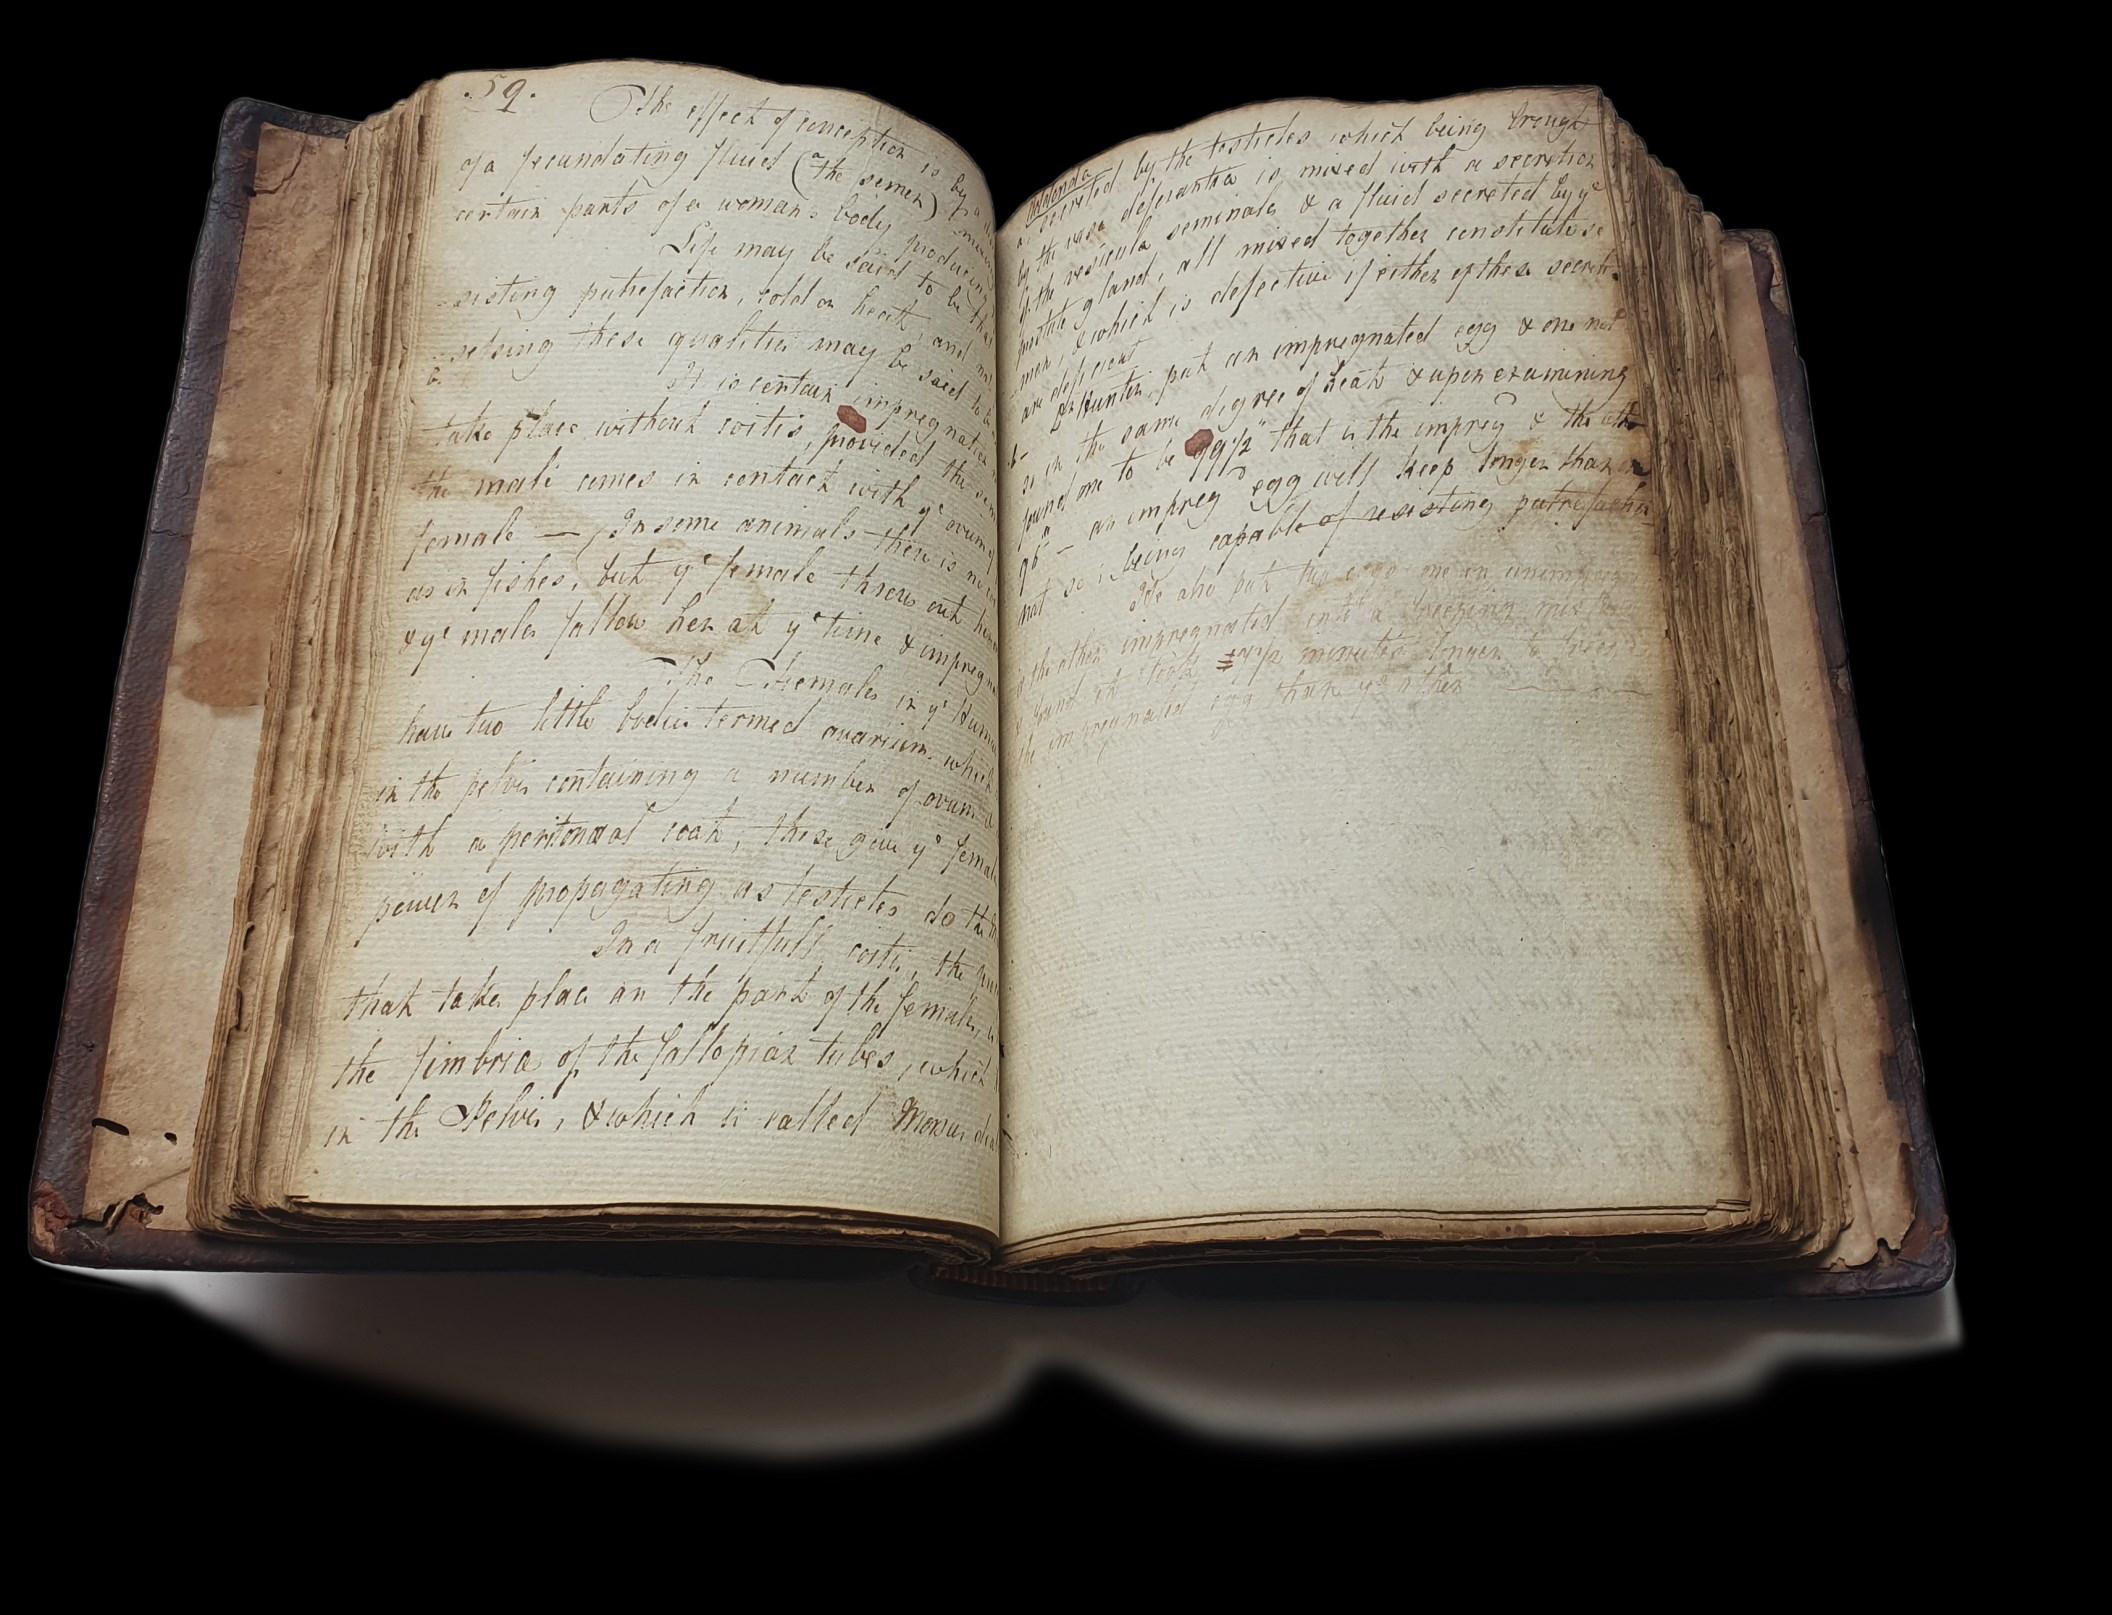 .59.
The effect of conception is by a
of a fecundating fluid (a the semen)
certain parts of a womans body producing
Life may be said to be that
-sisting putrefaction, cold or heat, and
-sessing these qualities may be said to be
b. It is certain impregnation
take place without coitis, provided the sem
the male comes in contact with ye ovum of
female — In some animals there is no
as in fishes, but ye female throws out her
& ye males follow her at ye time & impregn
The Females in ye Human
have two little bodies termed ovarium which
in the pelvis containing a number of ovum
with a peritonœal coat, these give ye female
power of propagating as testicles do the
In a fruitfull coitis, the
that takes place on the part of the female, is
the fimbria of the fallopian tubes, which
in the Pelvis, & which is called Morsus dia
Addenda
a. secreted by the testicles which being brought
by the vasa deferentia is mixed with a secretion
of the vesicula seminales & a fluid secreted by ye
prostate gland, all mixed together constitute se
-men, & which is defective if either of these secret
are deficient
b- Dr Hunter, put an impregnated egg & one not
so in the same degree of heat & upon examining
found one to be 99½ that is the impreg & the oth
96 — an impreg egg will keep longer than
not so; being capable of resisting putrefactn
He also put two eggs one an unimpregn
& the other impregnated into a freezing mixture
& found it took 7½ minutes longer to freeze
the impregnated egg than ye other